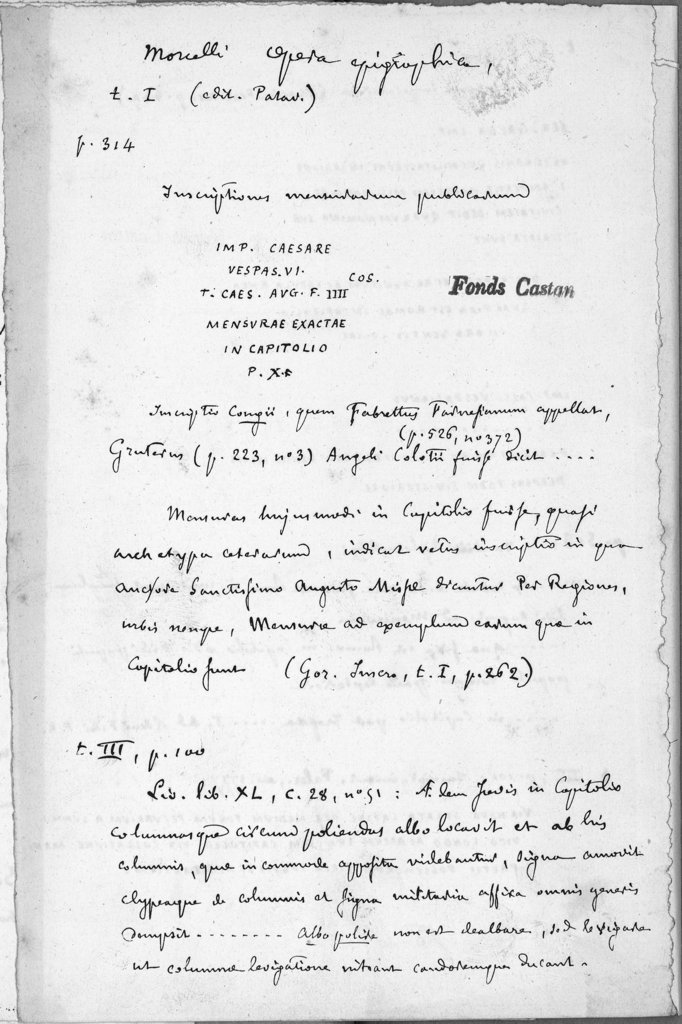 Morcelli opera epigraphica,
t. I (edit. Patav.)
p. 314
Inscriptiones mensurarum publicarum
IMP. CAESARE
VESPAS. VI.
COS.
T. CAES. AVG. F. IIII
MENSVRAE EXACTAE
IN CAPITOLIO
P. X
Fonds Castan
Inscriptio Congii, quem Fabrettus Farnesianum appellat,
(p. 526, no 372)
Gruterus (p. 223, no 3) Angeli Colotii fuisse dicit ....
Mensuras hujusmodi in Capitolio fuisse, quasi
archetypa ceterarum, indicat vetus inscriptio in qua
auctore Sanctissimo Augusto dicuntur Per Regiones,
urbis nempe, Mensurae ad exemplum earum quae in
Capitolio sunt (Gor. Inscr, t. I, p. 262.)
t. III, p. 100
Liv. lib. XL, c. 28, no 51 : Ædem Jovis in Capitolio
columnasque circum poliendas albo locavit et ab his
columnis, quae incommode opposita videbantur, signa amovit
clypeaque de columnis et signa militaria affixa omnis generis
dempsit ........ Albo polire non est dealbare, sed levigare
ut columnae levigatione niteant candoremque ducant.